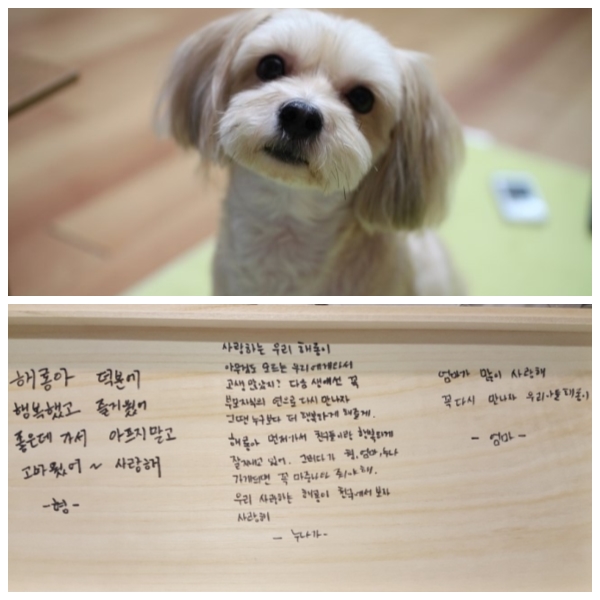 해롱아 덕분에
행복했고 즐거웠어
좋은데 가서 아프지말고
고마웠어 ~ 사랑해
-형-
사랑하는 우리 해롱이
아무것도 모르는 우리에게와서
고생많았지? 다음 생에선 꼭
부모자식의 연으로 다시 만나자
그땐 누구보다 더 행복하게 해줄게.
해롱아 먼저가서 친구들이랑 행복하게
잘지내고 있어. 그러다가 형, 엄마, 누나
가게되면 꼭 마중나와 줘야 해.
우리 사랑하는 해롱이 천국에서 보자
사랑해
- 누나가 -
엄마가 많이 사랑해
꼭 다시 만나자 우리아들해롱이
- 엄마 -